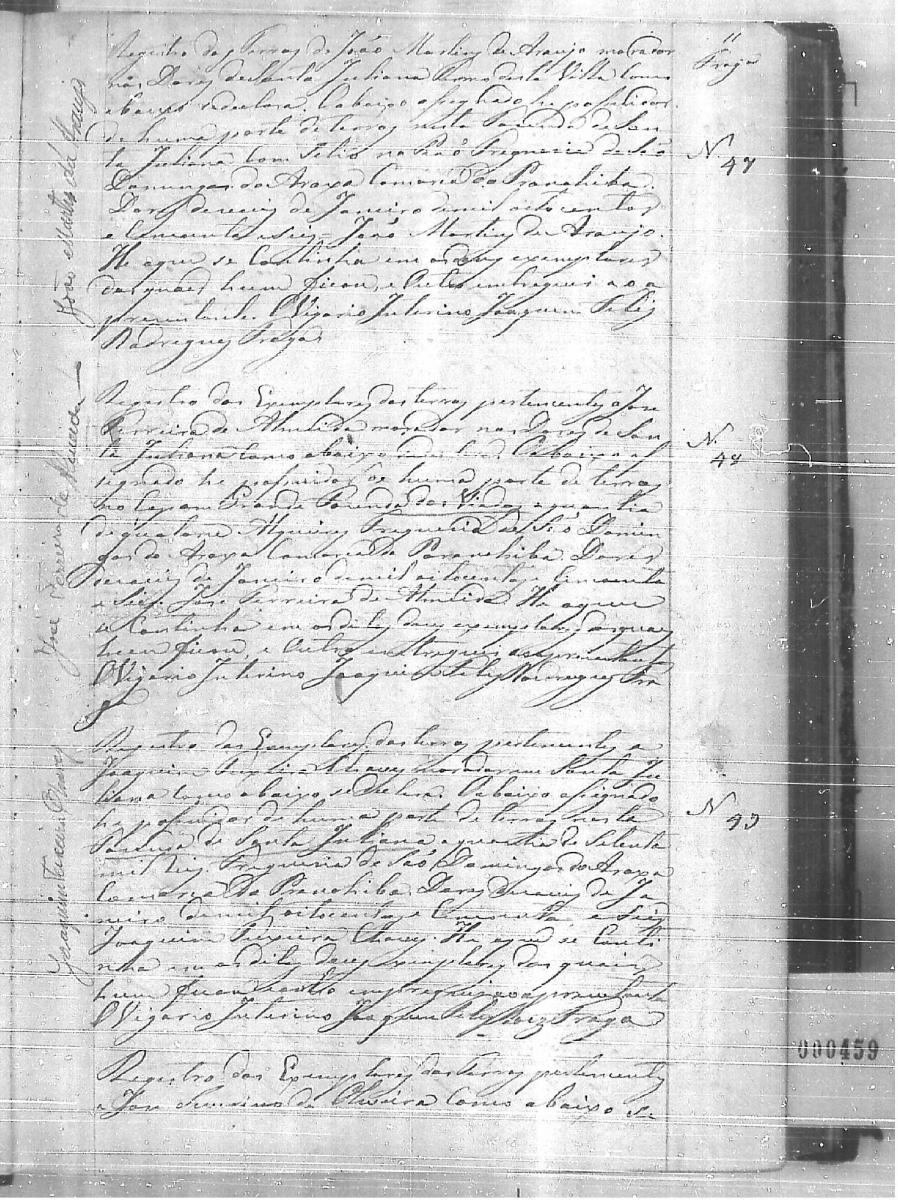 11
Fraga
Registro das Terras de João Martins de Araujo morador
nas Dores de Santa Juliana Termo desta Villa como
abaixo se declara. O abaixo assignado he possuidor
de huma parte de terras nesta Fazenda de San
ta Juliana com Freguezia de São
Domingos do Araxa Comarca do Paranahiba.
Dores dezeceis de Janeiro de mil oito centos
e Cincoenta e seis = João Martins de Araujo.
He o que se Continha em os dous exemplares
dos quaes hum ficou, e outro entreguei ao a
presentante. O Vigario Interino Joaquim Felis
Rodrigues Fraga
Nº 47
João Martins de Araujo
Registro dos Exemplares das terras pertencentes a Jose
Ferreira de Almeida morador nas Dores de San
ta Juliana como abaixo se declara. O abaixo as
signado he possuidor de huma parte de terras
no Capam Grande Fazenda das
de Alqueires Freguezia de São Domin
gos do Araxa Comarca do Paranahiba Dores
dezeceis de Janeiro de mil oitocentos e Cincoenta
e Seis. Jose Ferreira de Almeida He o que
se Continha em os di tos dous exemplares dos quaes
hum ficou, e outro entreguei ao apresentante
O Vigario Interino Joaquim Felis Rodrigues Fra
ga
Nº 48
José Ferreira de Almeida
Registro dos Exemplares das terras pertencentes a
Joaquim Teixeira Chaves morador em Santa Ju
liana como abaixo se declara. O abaixo assignado
he possuidor de huma parte de terras nesta
Fazenda de Santa Juliana a quantia de Setenta
mil reis. Freguezia de São Domingos do Araxa
Comarca do Paranahiba. Dores Dezeceis de Ja
neiro de mil oitocentos e Cincoenta e Seis
Joaquim Teixeira Chaves. He o que se Conti
nha em os di tos dous exemplares dos quaes
hum ficou e outro entreguei ao apresentante
O Vigario Interino Joaquim Felis Roiz Fraga
Nº 49
Joaquim Teixeira Chaves
Registro dos Exemplares das Terras pertencentes
a Jose de Oliveira como abaixo se
000459